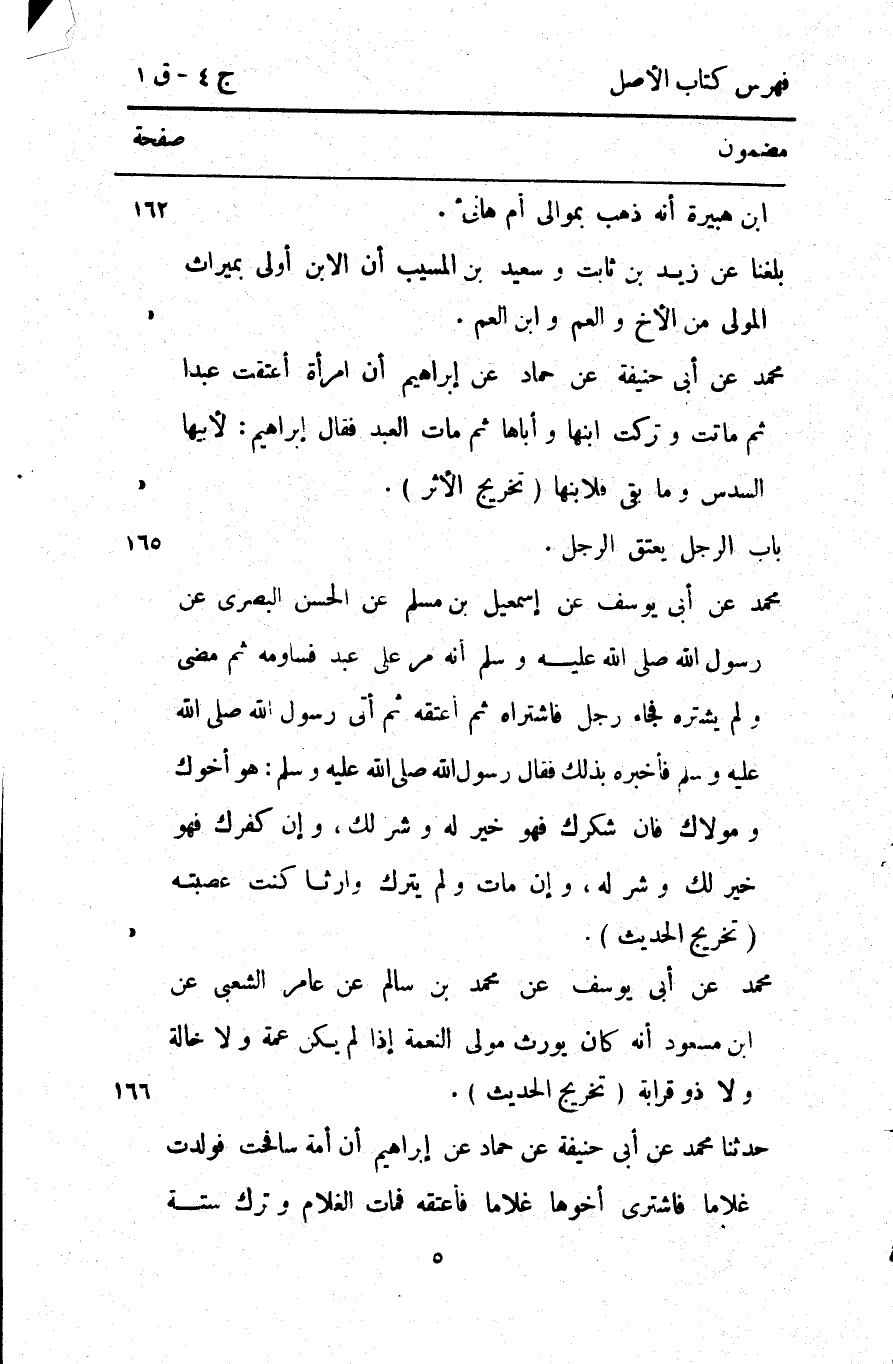 فهرس كتاب الأصل ج ٤ - ق ١
مضمون صفحة
ابن هبيرة أنه ذهب بموالى أم هانىء . ١٦٢
بلغنا عن زيد بن ثابت و سعيد بن المسيب أن الابن أولى بميراث
المولى من الأخ و العم و ابن العم . «
محمد عن أبى حنيفة عن حماد عن إبراهيم أن امرأة أعتقت عبدا
ثم ماتت و تركت ابنها و أباها ثم مات العبد فقال إبراهيم : لأبيها
السدس و ما بقى فلابنها ( تخريج الأثر ) . «
باب الرجل يعتق الرجل . ١٦٥
محمد عن أبى يوسف عن إسمعيل بن مسلم عن الحسن البصرى عن
رسول الله صلى الله عليه و سلم أنه مر على عبد فساومه ثم مضى
و لم يشتره فجاء رجل فاشتراه ثم أعتقه ثم أتى رسول الله صلى الله
عليه و سلم فأخبره بذلك فقال رسول الله صلى الله عليه و سلم : هو أخوك
و مولاك فان شكرك فهو خير له و شر لك ، و إن كفرك فهو
خير لك و شر له ، و إن مات و لم يترك وارثا كنت عصبته
( تخريج الحديث ) . «
محمد عن أبى يوسف عن محمد بن سالم عن عامر الشعبى عن
ابن مسعود أنه كان يورث مولى النعمة إذا لم يكن عمة و لا خالة
و لا ذو قرابة ( تخريج الحديث ) . ١٦٦
حدثنا محمد عن أبى حنيفة عن حماد عن إبراهيم أن أمة سافحت فولدت
غلاما فاشترى أخوها غلاما فأعتقه فمات الغلام و ترك ستة
٥